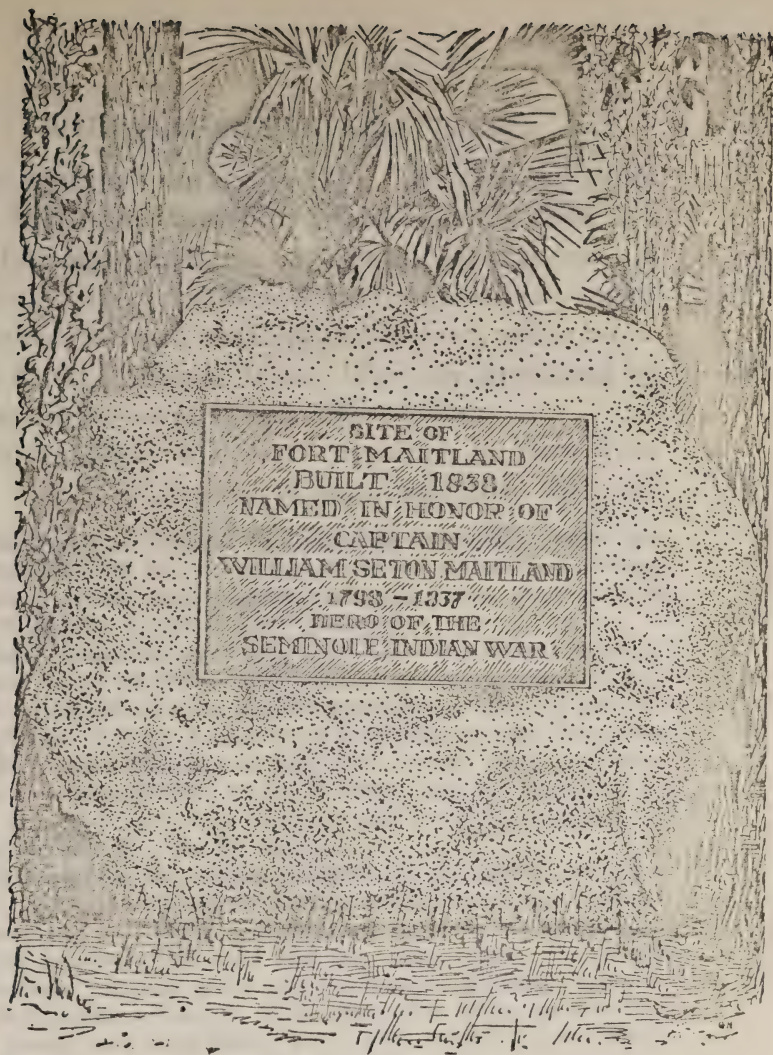 SITE OF
FORT MAITLAND
BUILT 1838
NAMED IN HONOR OF
CAPTAIN
WILLIAM SETON MAITLAND
1798 - 1837
HERO OF THE
SEMINOLE INDIAN WAR